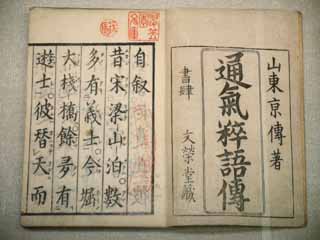 山東京傳著
通氣粹語傳
書肆 文榮堂藏
自叙
昔宋梁山泊數
多有義士今堀
大棧橋餘多有
遊士彼替天而